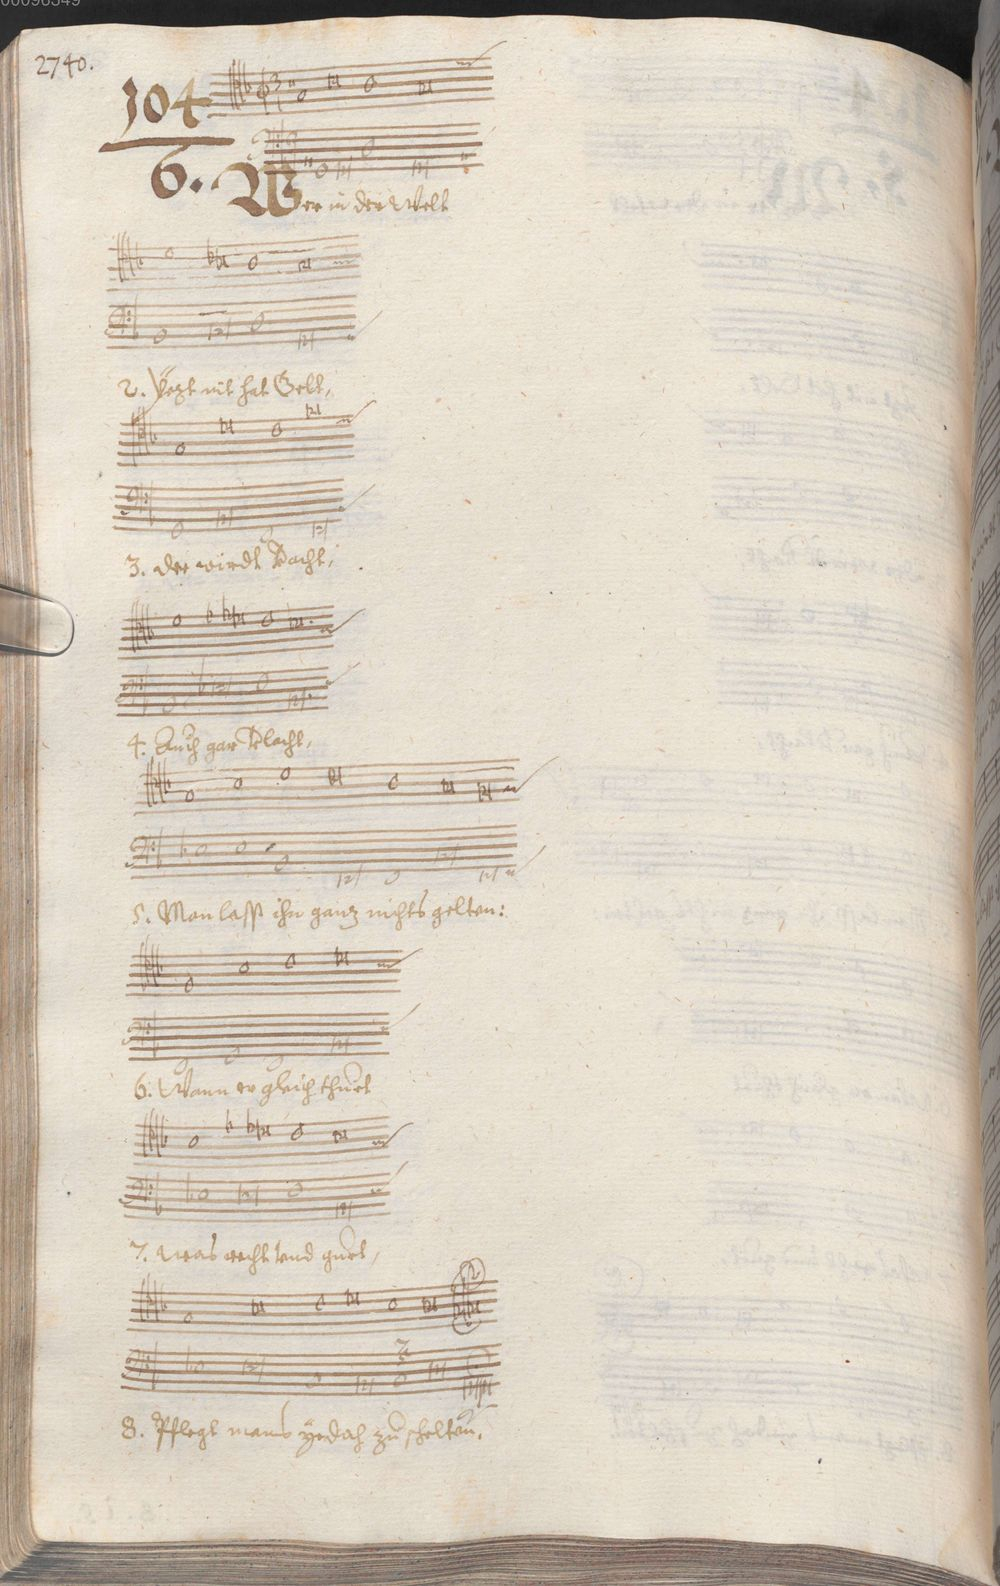 00096549
2740.
104
6. Wer in der Welt
2. Yezt nit hat Gelt,
3. der wirdt Vacht,
4. Auch gar Blacht,
5. Man lasst ihn ganz nichts gelten:
6. Wann er gleich thuet
7. was recht und guet,
8. Pflegt mans yedoch zu schelten.